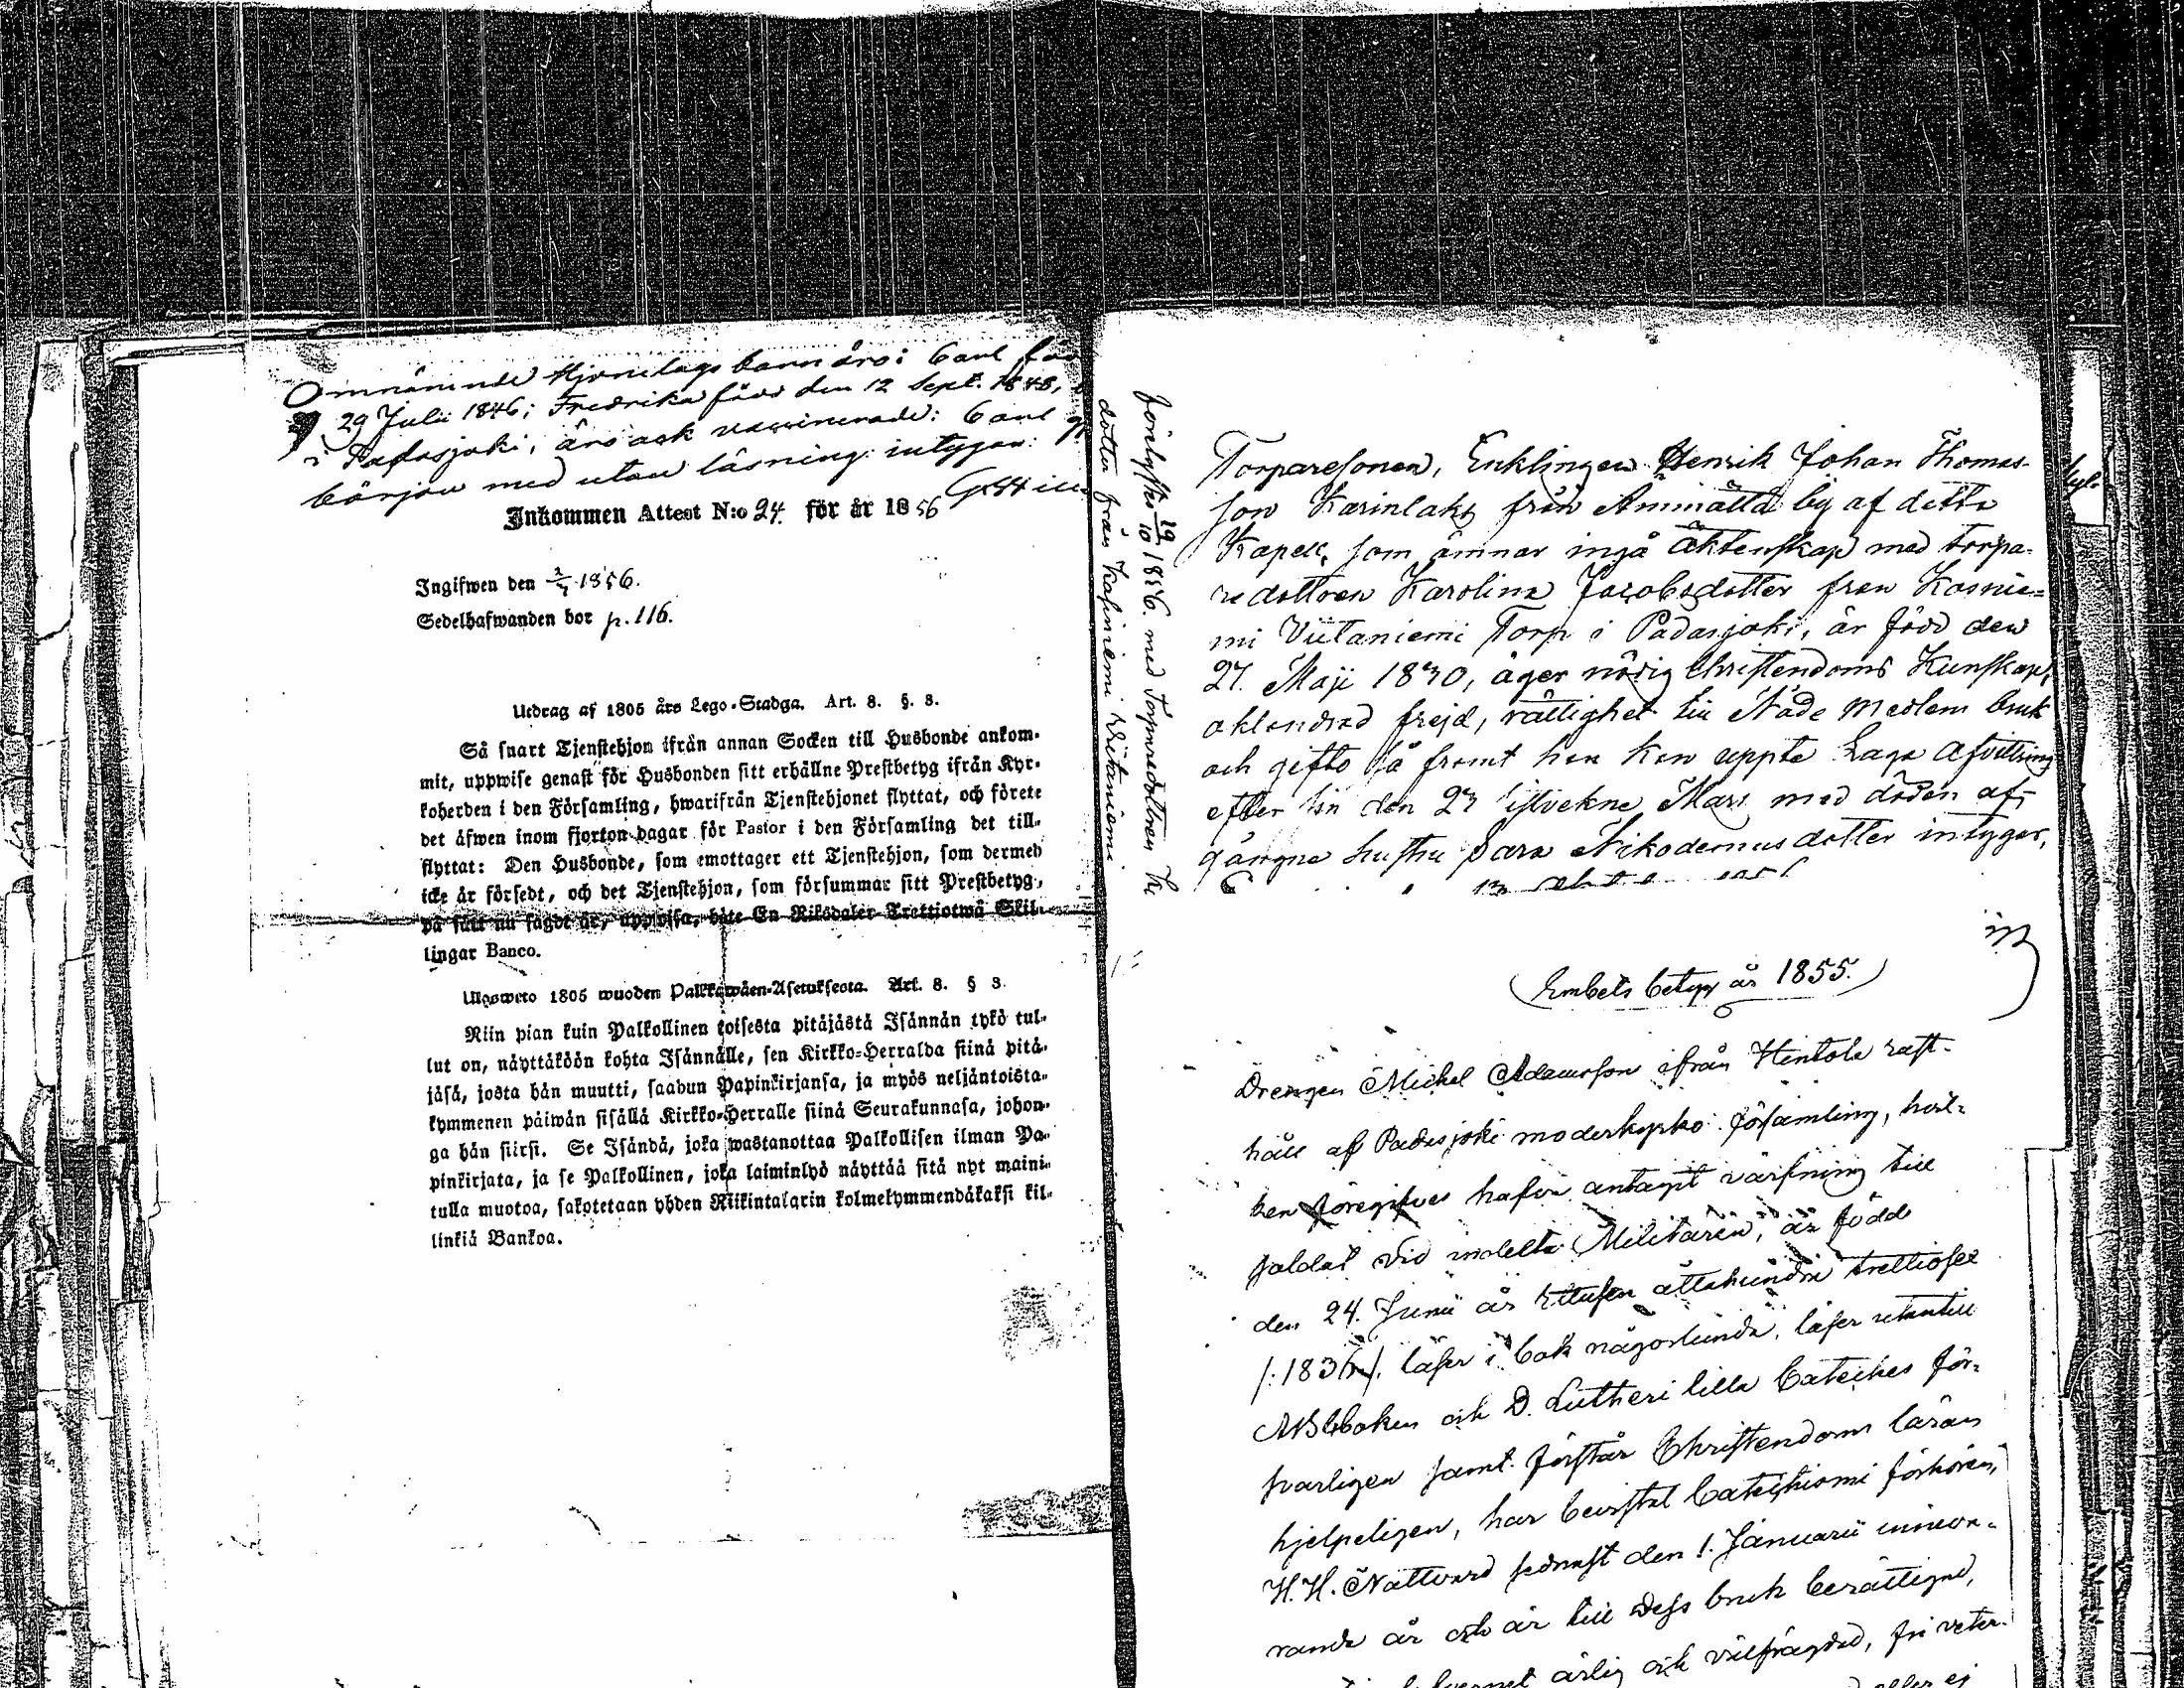 Omnämnde Hjonelags barn äro: Carl föd
29 Julii 1846; Fredrika född den 12 Sept. 1848,
i Padasjoki, äro ock vaccinerade: Carl
början med utan läsning intygar:
Inkommen Attest N:o 24. för år 1856
Ingifwen den 1856.
Sedelhafwanden bor p. 116.
Utdrag af 1805 års Lego-Stadga. Art. 8. §. 3.
Så snart Tjenstehjon ifrån annan Socken till Husbonde ankom-
mit, uppwise genast för Husbonden sitt erhållne Prestbetyg ifrån Kyr-
koherden i den Församling, hwarifrån Tjenstehjonet flyttat, och förete
det äfwen inom fjorton dagar för Pastor i den Församling det till-
flyttat: Den Husbonde, som emottager ett Tjenstehjon, som dermed
icke är försedt, och det Tjenstehjon, som försummar sitt Prestbetyg,
på sätt nu sagdt är, uppwisa, böte En Riksdaler Trettiotwå Skil-
lingar Banco.
Ulgosweto 1805 wuoden Palkkawäen-Asetuksesta. Art. 8. § 3.
Niin pian kuin Palkollinen toisesta pitäjästä Isännän tykö tul-
lut on, näyttäköön kohta Isännälle, sen Kirkko-Herralda siinä pitä-
jäsä, josta hän muutti, saadun Papinkirjansa, ja myös neljäntoista-
kymmenen päiwän sisällä Kirkko-Herralle siinä Seurakunnasa, johon-
ga hän siirsi. Se Isändä, joka wastanottaa Palkollisen ilman Pa-
pinkirjata, ja se Palkollinen, joka laiminlyö näyttää sitä nyt maini-
tulla muotoa, sakotetaan yhden Riikintalarin kolmekymmendäkaksi kil-
linkiä Bankoa.
Förelystes 19/10 1856. med Torparedottren
dotter från Kasiniemi Viitaniemi
Torparesonen, Enklingen Henrik Johan Thomas-
son Karinlaks från Ammätlä by af detta
Kapell, som ämnar ingå äktenskap med torpa-
redottren Karolina Jacobsdotter från Kasnie-
mi Viitaniemi Torp i Padasjoki, är född den
27. Maji 1830, äger nödig Christendoms Kunskap,
oklandrad frejd, rättighet till Nåde medlens bruk
och gifto så framt han kan uppte Laga afvittring
efter sin den 23 sistvekne Mars med döden af-
gångne hustru Sara Nikodemusdotter intygar,
(Embets betyg år 1855.)
Drengen Michel Adamsson ifrån Hentola rust-
håll af Padasjoki moderkyrko församling, hvil-
ken föregifves hafva antagit värfning till
soldat vid indelta Militären, är född
den 24. Junii år Ettusen åttahundra trettiosex
/:1836:/. läser i bok någorlunda, läser utantill
ABCboken och D. Lutheri lilla Cateches för-
svarligen samt förstår Christendoms läran
hjelpeligen, har bevistat Catechismi förhören,
H. H. Nattvard sednast den 1. Januarii inneva-
rande år och är till dess bruk berättigad,
ärlig och välfrägdad, fri veter-
eller ej